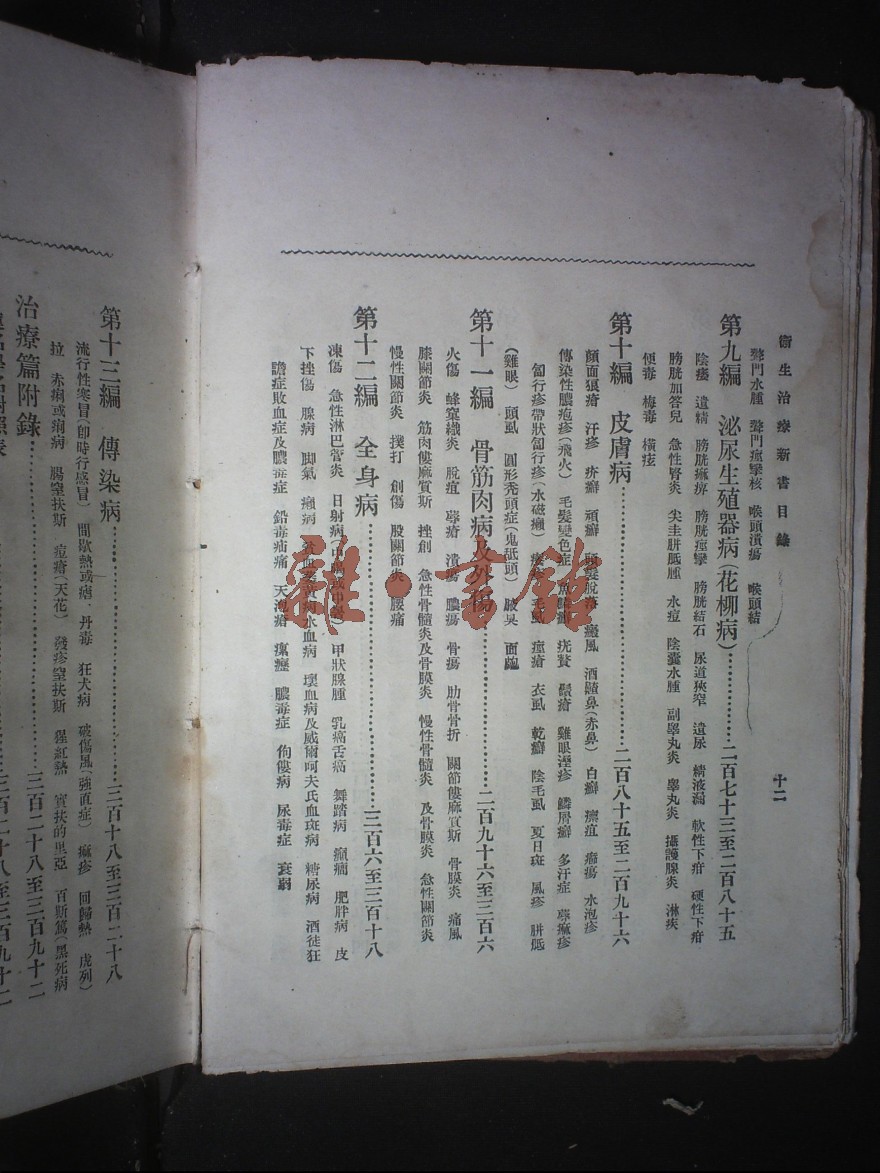 衛生治療新書目錄 十二
聲門水腫 聲門痙攣核 喉頭潰瘍 喉頭結
第九編 泌尿生殖器病(花柳病)………二百七十三至二百八十五
陰痿 遺精 膀胱麻痺 膀胱痙攣 膀胱結石 尿道狹窄 遺尿 精液漏 軟性下疳 硬性下疳
膀胱加答兒 急性腎炎 尖圭胼胝腫 水痘 陰囊水腫 副睾丸炎 睾丸炎 攝護腺炎 淋疾
便毒 梅毒 橫痃
第十編 皮膚病………二百八十五至二百九十六
顏面狼瘡 汗疹 疥癬 頑癬 頭髮脫落 癜風 酒齄鼻(赤鼻) 白癬 瘭疽 癤瘍 水泡疹
傳染性膿疱疹(飛火) 毛髮變色症 魚鱗癬 疣贅 鬚瘡 雞眼溼疹 鱗屑癬 多汗症 蕁麻疹
匐行疹帶狀匐行疹(水磁癩) 痤疹 毛虱 痤瘡 衣虱 乾癬 陰毛虱 夏日斑 風疹 胼胝
(雞眼) 頭虱 圓形禿頭症(鬼舐頭) 腋臭 面皰
第十一編 骨筋肉病及外傷………二百九十六至三百六
火傷 蜂窠織炎 脫疽 潰瘍 膿瘍 骨瘍 肋骨骨折 關節僂麻質斯 骨膜炎 痛風
膝關節炎 筋肉僂麻質斯 挫創 急性骨髓炎及骨膜炎 慢性骨髓炎 及骨膜炎 急性關節炎
慢性關節炎 撲打 創傷 股關節炎 腰痛
第十二編 全身病………三百六至三百十八
凍傷 急性淋巴管炎 日射病 甲狀腺腫 乳癌舌癌 舞踏病 癲癇 肥胖病 皮
下挫傷 腺病 脚氣 癩病 貧血 黃病 水血病 壞血病及威爾呵夫氏血斑病 糖尿病 酒徒狂
譫症敗血症及膿毒症 鉛毒疝痛 天泡瘡 瘰癧 膿毒症 佝僂病 尿毒症 衰弱
第十三編 傳染病………三百十八至三百二十八
流行性寒冒(即時行感冒) 間歇熱或瘧 丹毒 狂犬病 破傷風(強直症) 痲疹 回歸熱 虎列
拉 赤痢或痢病 腸窒扶斯 痘瘡(天花) 發疹窒扶斯 猩紅熱 實扶的里亞 百斯篤(黑死病
治療篇附錄………三百二十八至三百九十二